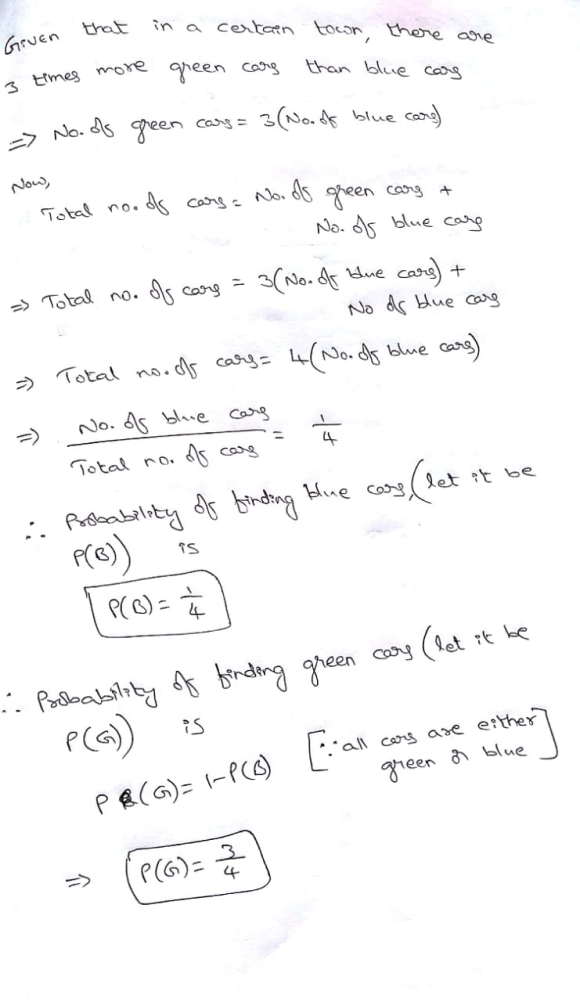 Given that in a certain town, there are
3 times more green cars than blue cars
=> No. of green cars = 3(No. of blue cars)
Now,
Total no. of cars = No. of green cars +
No. of blue cars
=> Total no. of cars = 3(No. of blue cars) +
No of blue cars
=> Total no. of cars = 4(No. of blue cars)
=> No. of blue cars / Total no. of cars = 1/4
∴ Probability of finding blue cars, (let it be
P(B)) is
P(B) = 1/4
∴ Probability of finding green cars (let it be
P(G)) is
P(G) = 1-P(B) [∵ all cars are either
green or blue]
=> P(G) = 3/4